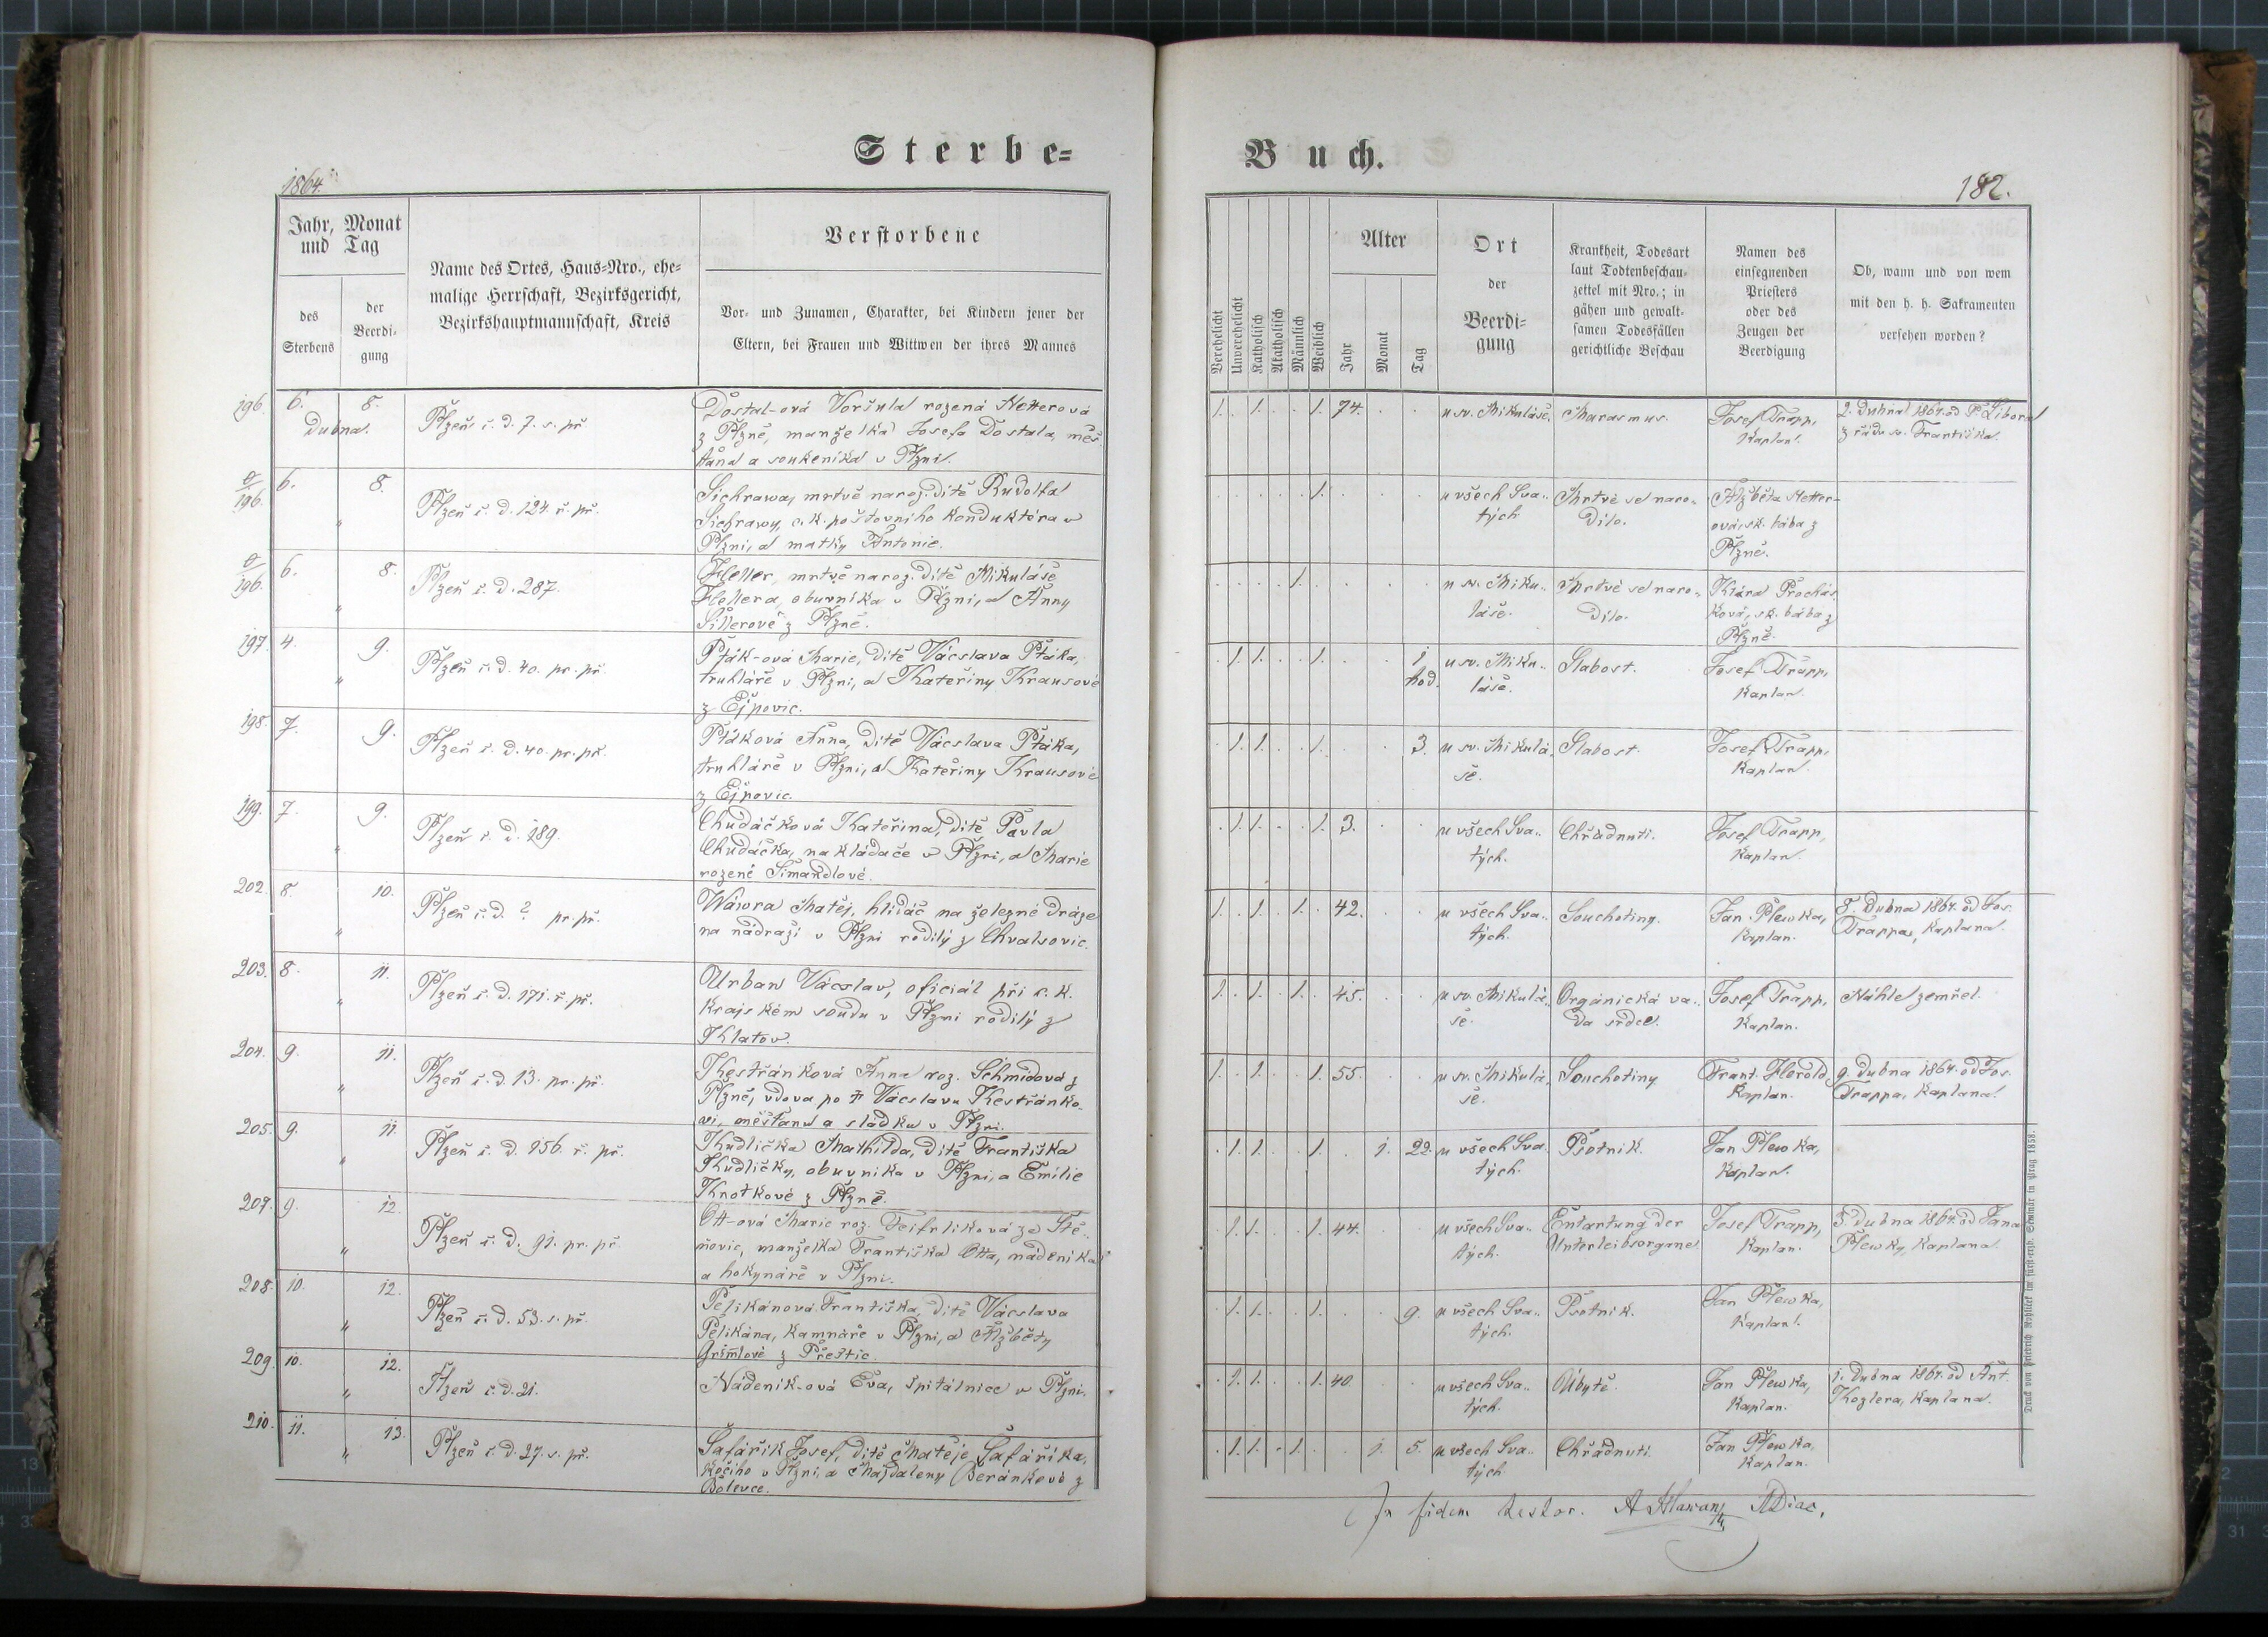 Sterbe=
1864.
Jahr, Monat
und Tag
des
Sterbens
der
Beerdi-
gung
Name des Ortes, Haus-Nro., ehe-
malige Herrschaft, Bezirksgericht,
Bezirkshauptmannschaft, Kreis
Verstorbene
Vor- und Zunamen, Charakter, bei Kindern jener der
Eltern, bei Frauen und Wittwen der ihres Mannes
196. 6. 8. Plzeň č. d. 7. s. př.
dubna.
Dostal-ová Voršula rozená Hetterová
z Plzně, manželka Josefa Dostala, měš-
ťana a soukeníka v Plzni.
0/196. 6. " 8. Plzeň č. d. 124. ř. př.
Sichrawa, mrtvě naroz. dítě Rudolfa
Sichrawy, c. k. poštovního konduktéra v
Plzni, a matky Antonie.
0/196. 6. " 8. Plzeň č. d. 287.
Heller, mrtvě naroz. dítě Mikuláše
Hellera, obuvníka v Plzni, a Anny
Sillerové z Plzně.
197. 4. " 9. Plzeň č. d. 40. pr. př.
Pták-ová Marie, dítě Václava Ptáka,
truhláře v Plzni, a Kateřiny Krausové
z Ejpovic.
198. 7. 9. Plzeň č. d. 40. pr. př.
Ptáková Anna, dítě Václava Ptáka,
truhláře v Plzni, a Kateřiny Krausové
z Ejpovic.
199. 7. " 9. Plzeň č. d. 189.
Chudáčková Kateřina, dítě Pavla
Chudáčka, nakládače v Plzni, a Marie
rozené Šimandlové.
202. 8. " 10. Plzeň č. d. ? pr. př.
Wáwra Matěj, hlídač na železné dráze
na nádraží v Plzni rodilý z Chvalšovic.
203. 8. " 11. Plzeň č. d. 171. ř. př.
Urban Vácslav, oficiál při c. k.
krajském soudu v Plzni rodilý z
Klatov.
204. 9. " 11. Plzeň č. d. 13. pr. př.
Kestřánková Anna roz. Schmidová z
Plzně, vdova po † Vácslavu Kestřánko-
vi, měšťanu a sládku v Plzni.
205. 9. " 11. Plzeň č. d. 156. ř. př.
Kudlička Mathilda, dítě Františka
Kudličky, obuvníka v Plzni, a Emilie
Knotkové z Plzně.
207. 9. " 12. Plzeň č. d. 91. pr. př.
Ott-ová Marie roz. Feifrlíková ze Stě-
novic, manželka Františka Otta, nádeníka
a hokynáře v Plzni.
208. 10. " 12. Plzeň č. d. 53. s. př.
Pelikánová Františka, dítě Vácslava
Pelikána, kamnáře v Plzni, a Alžběty
Grimlové z Přeštic.
209. 10. " 12. Plzeň č. d. 21.
Nádeník-ová Eva, špitálnice v Plzni.
210. 11. " 13. Plzeň č. d. 27. s. př.
Šafařík Josef, dítě Matěje Šafaříka,
kočího v Plzni, a Majdaleny Beránkové z
Bolevce.
Buch.
182.
Verehelicht
Unverehelicht
Katholisch
Akatholisch
Männlich
Weiblich
Alter
Jahr
Monat
Tag
Ort
der
Beerdi-
gung
Krankheit, Todesart
laut Todtenbeschau-
zettel mit Nro.; in
gähen und gewalt-
samen Todesfällen
gerichtliche Beschau
Namen des
einsegnenden
Priesters
oder des
Zeugen der
Beerdigung
Ob, wann und von wem
mit den h. h. Sakramenten
versehen worden?
1. . 1. . . 1. 74. . . u sv. Mikuláše. Marasmus. Josef Trapp, 2. dubna 1864. od P. Libora
Kaplan. z řádu sv. Františka.
. . . . . 1. . . . u všech Sva- Mrtvé se naro- Alžběta Hetter-
tých. dilo. ová, sk. bába z
Plzně.
. . . . 1. . . . . u sv. Miku- Mrtvé se naro- Klára Prochás-
láše. dilo. ková, sk. bába z
Plzně.
. 1. 1. . . 1. . . 1 u sv. Miku- Slabost. Josef Trapp,
hod. láše. Kaplan.
. 1. 1. . . 1. . . 3. u sv. Mikulá- Slabost. Josef Trapp,
še. Kaplan.
. 1. 1. . . 1. 3. . . u všech Sva- Chřadnutí. Josef Trapp,
tých. Kaplan.
1. . 1. . 1. . 42. . . u všech Sva- Souchotiny. Jan Plewka, 8. dubna 1864. od Jos.
tých. Kaplan. Trappa, Kaplana.
1. . 1. . 1. . 45. . . u sv. Mikulá- Organická va- Josef Trapp, Náhle zemřel.
še. da srdce. Kaplan.
1. . 1. . . 1. 55. . . u sv. Mikulá- Souchotiny. Frant. Herold, 9. dubna 1864. od Jos.
še. Kaplan. Trappa, Kaplana.
. 1. 1. . . 1. . 1. 22. u všech Sva- Psotník. Jan Plewka,
tých. Kaplan.
. 1. 1. . . 1. 44. . . u všech Sva- Entartung der Josef Trapp, 5. dubna 1864. od Jana
tých. Unterleibsorgane. Kaplan. Plewky, Kaplana.
. 1. 1. . . 1. . . 9. u všech Sva- Psotník. Jan Plewka,
tých. Kaplan.
. 1. 1. . . 1. 40. . . u všech Sva- Úbytě. Jan Plewka, 1. dubna 1864. od Ant.
tých. Kaplan. Kozlera, Kaplana.
. 1. 1. . 1. . . 1. 5. u všech Sva- Chřadnutí. Jan Plewka,
tých. Kaplan.
In fidem testor. A Hlawan
Druck von Friedrich Rohliček im fürst-erzb. Seminär in Prag 1858.